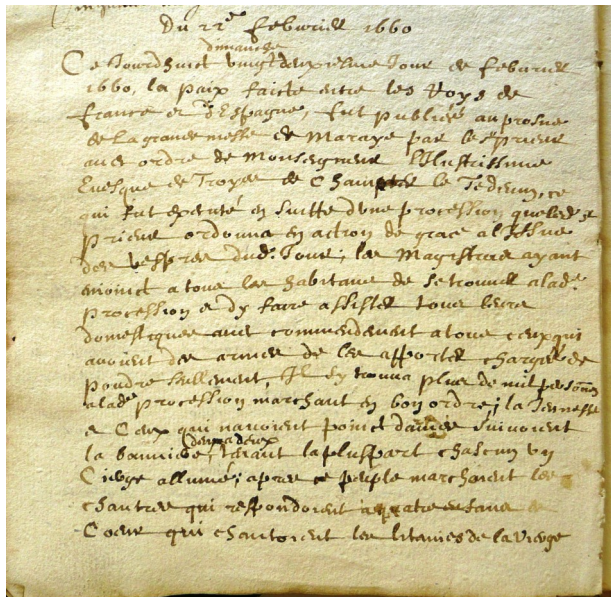 Du 22e febvrier 1660
dimanche
Ce Jourdhuict vingtdeuxiesme Jour de febvrier
1660, la paix faicte entre les Roys de
france et d'Espagne, fut publiée au prosne
de La grande messe de Maraye par le Sr prieur
avec ordre de Monseigneur L'Illustrissime
Evesque de Troyes de Chanter le Tedeum, ce
qui fut executé en suitte dune procession que led. Sr
prieur ordonna en action de grace a l'Issue
des vespres dud. Jour; les Magistrats ayant
enioinct a tous les habitans de se trouver a lad.e
procession et dy faire assister tous leurs
domestiques avec commendement a tous ceux qui
avoient des armes de les apporter chargées de
poudre seullement, Il sy trouva plus de mil personnes
a lade procession marchant en bon ordre; la Jeunesse
et Ceux qui navoient poinct darmes suivoient
deux a deux
la banniere, tenant la pluspart chascun un
Cierge allumé; apres ce peuple marchoient les
chantres qui respondoient a quatre enfans de
Coeur qui chantoient les litanies de la vierge